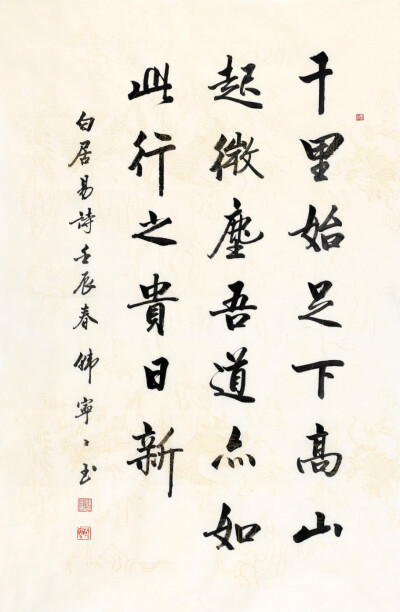 千里始足下高山
起微塵吾道亦如
此行之貴日新
白居易詩壬辰春韩寧〻